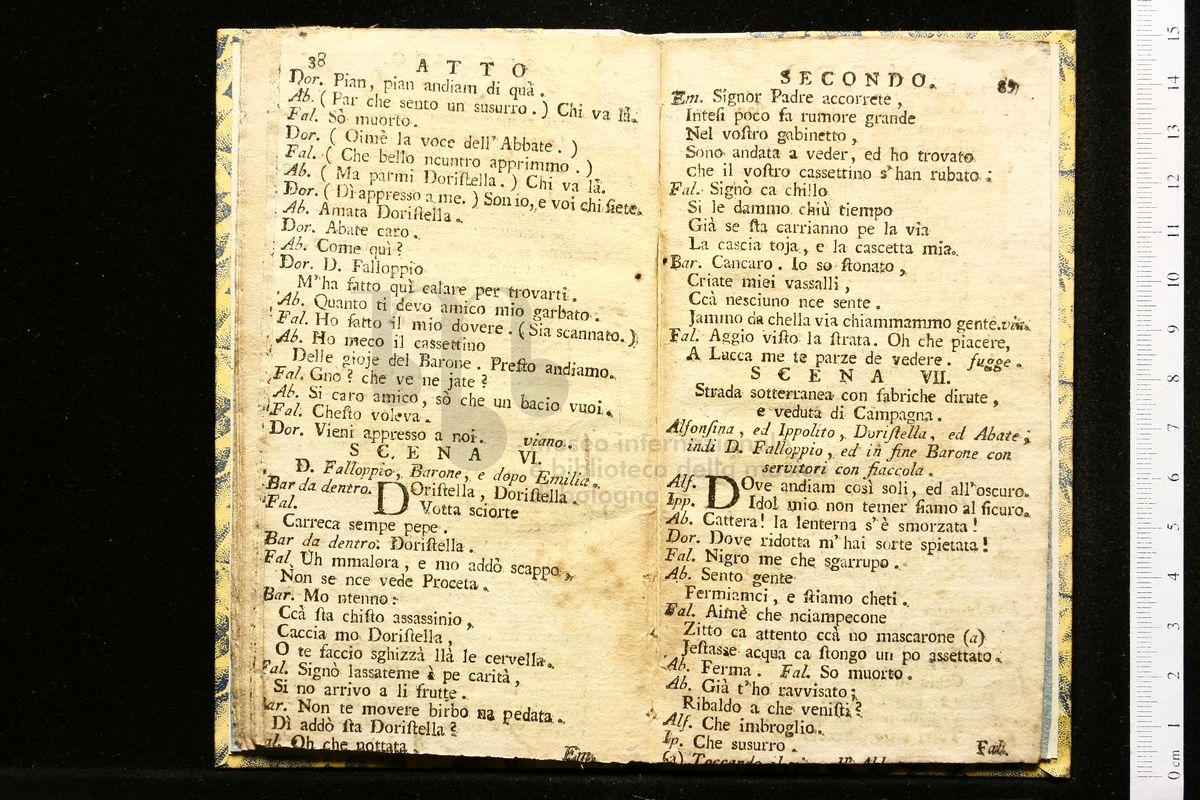 38
ATTO
Dor. Pian, pian andiam di quà.
Ab. ( Par che sento un susurro. ) Chi va là.
Fal. Sò muorto.
Dor. ( Oimè la voce dell' Abbate. )
Fal. ( Che bello ncuntro apprimmo. )
Ab. ( Ma parmi Doristella. ) Chi va là.
Dor. ( Dì appresso a me. ) Son io, e voi chi siete.
Ab. Amata Doristella.
Dor. Abate caro.
Ab. Come quì?
Dor. D. Falloppio
M'ha fatto quì calare per trovarti.
Ab. Quanto ti devo amico mio garbato.
Fal. Ho fatto il mio dovere. ( Sia scannato. )
Ab. Ho meco il cassettino
Delle gioje del Barone. Presto andiamo.
Fal. Gno? che ve ne jate?
Ab. Si caro amico, sò che un bacio vuoi.
Fal. Chesto voleva.
Dor. Vieni appresso a noi. viano.
SCENA VI.
D. Falloppio, Barone, e dopo Emilia.
Bar da dentro. DOristella, Doristella.
Fal. Votta sciorte
Carreca sempe pepe.
Bar da dentro. Doristella.
Fal. Uh mmalora, e mo addò scappo,
Non se nce vede Proceta.
Bar. Mo ntenno:
Ccà sta chisto assassinio,
Caccia mo Doristella,
O te faccio sghizzà llà le cervella.
Fal. Signò lassateme à pe carità,
Si no arrivo a li frutte.
Bar. Non te movere birbo na pedata.
Dì addò sta Doristella?
Fal. Oh che nottata
Em.
SECONDO.
Em. Signor Padre accorrete,
Intesi poco fa rumore grande
Nel vostro gabinetto,
Sono andata a veder, ed ho trovato
che il vostro cassettino s'han rubato:
Fal. Signò ca chillo
Si le dammo chiù tiempo
Già se sta carrianno pe la via
La cascia toja, e la cascetta mia.
Bar. Cancaro. Io so stonato,
Criate miei vassalli,
Ccà nesciuno nce sente.
Jammo da chella via chiammammo gente. via.
Fal. Aggio visto la strata. Oh che piacere,
A Lucca me te parze de vedere. fugge.
SCENA VII.
Strada sotterranea con fabriche dirute,
e veduta di Campagna.
Alfonsina, ed Ippolito, Doristella, ed Abate,
indi D. Falloppio, ed in fine Barone con
servitori con fiaccola.
Alf. DOve andiam così soli, ed all'oscuro.
Ipp. Idol mio non temer siamo al sicuro.
Ab. Cattera! la lenterna s'è smorzata!
Dor. Dove ridotta m'hai sorte spietata!
Fal. Nigro me che sgarrupo.
Ab. Sento gente
Fermiamci, e stiamo cheti.
Fal. Aimè che nciampecone
Zitto ca attento ccà no mascarone (a)
Jestasse acqua ca stongo un po assettato.
Ab. Ferma. Fal. So muorto.
Ab. Già t'ho ravvisato;
Ribaldo a che venisti?
Alf. Che imbroglio.
Ip. Che susurro.
Fal.
(a) Toccando
museo internazionale
e biblioteca della musica
bologna
0 cm 1 2 3 4 5 6 7 8 9 10 11 12 13 14 15